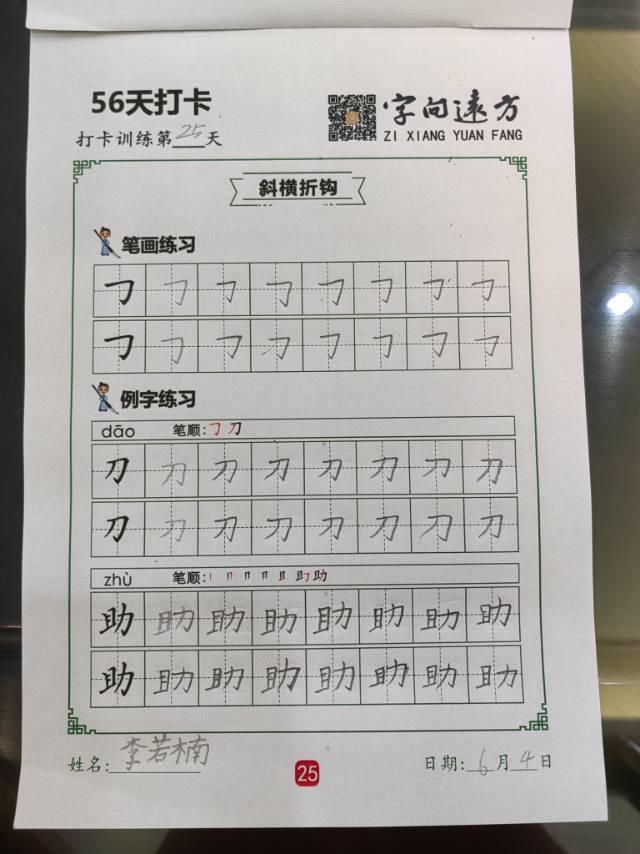 56天打卡
字向远方
打卡训练第25天
ZI XIANG YUAN FANG
斜横折钩
笔画练习
㇆ ㇆ ㇆ ㇆ ㇆ ㇆ ㇆ ㇆
㇆ ㇆ ㇆ ㇆ ㇆ ㇆ ㇆ ㇆
例字练习
dāo 笔顺:㇆ 刀
刀 刀 刀 刀 刀 刀 刀 刀
刀 刀 刀 刀 刀 刀 刀 刀
zhù 笔顺:
助 助 助 助 助 助 助 助
助 助 助 助 助 助 助 助
姓名:李若楠
25
日期:6月4日